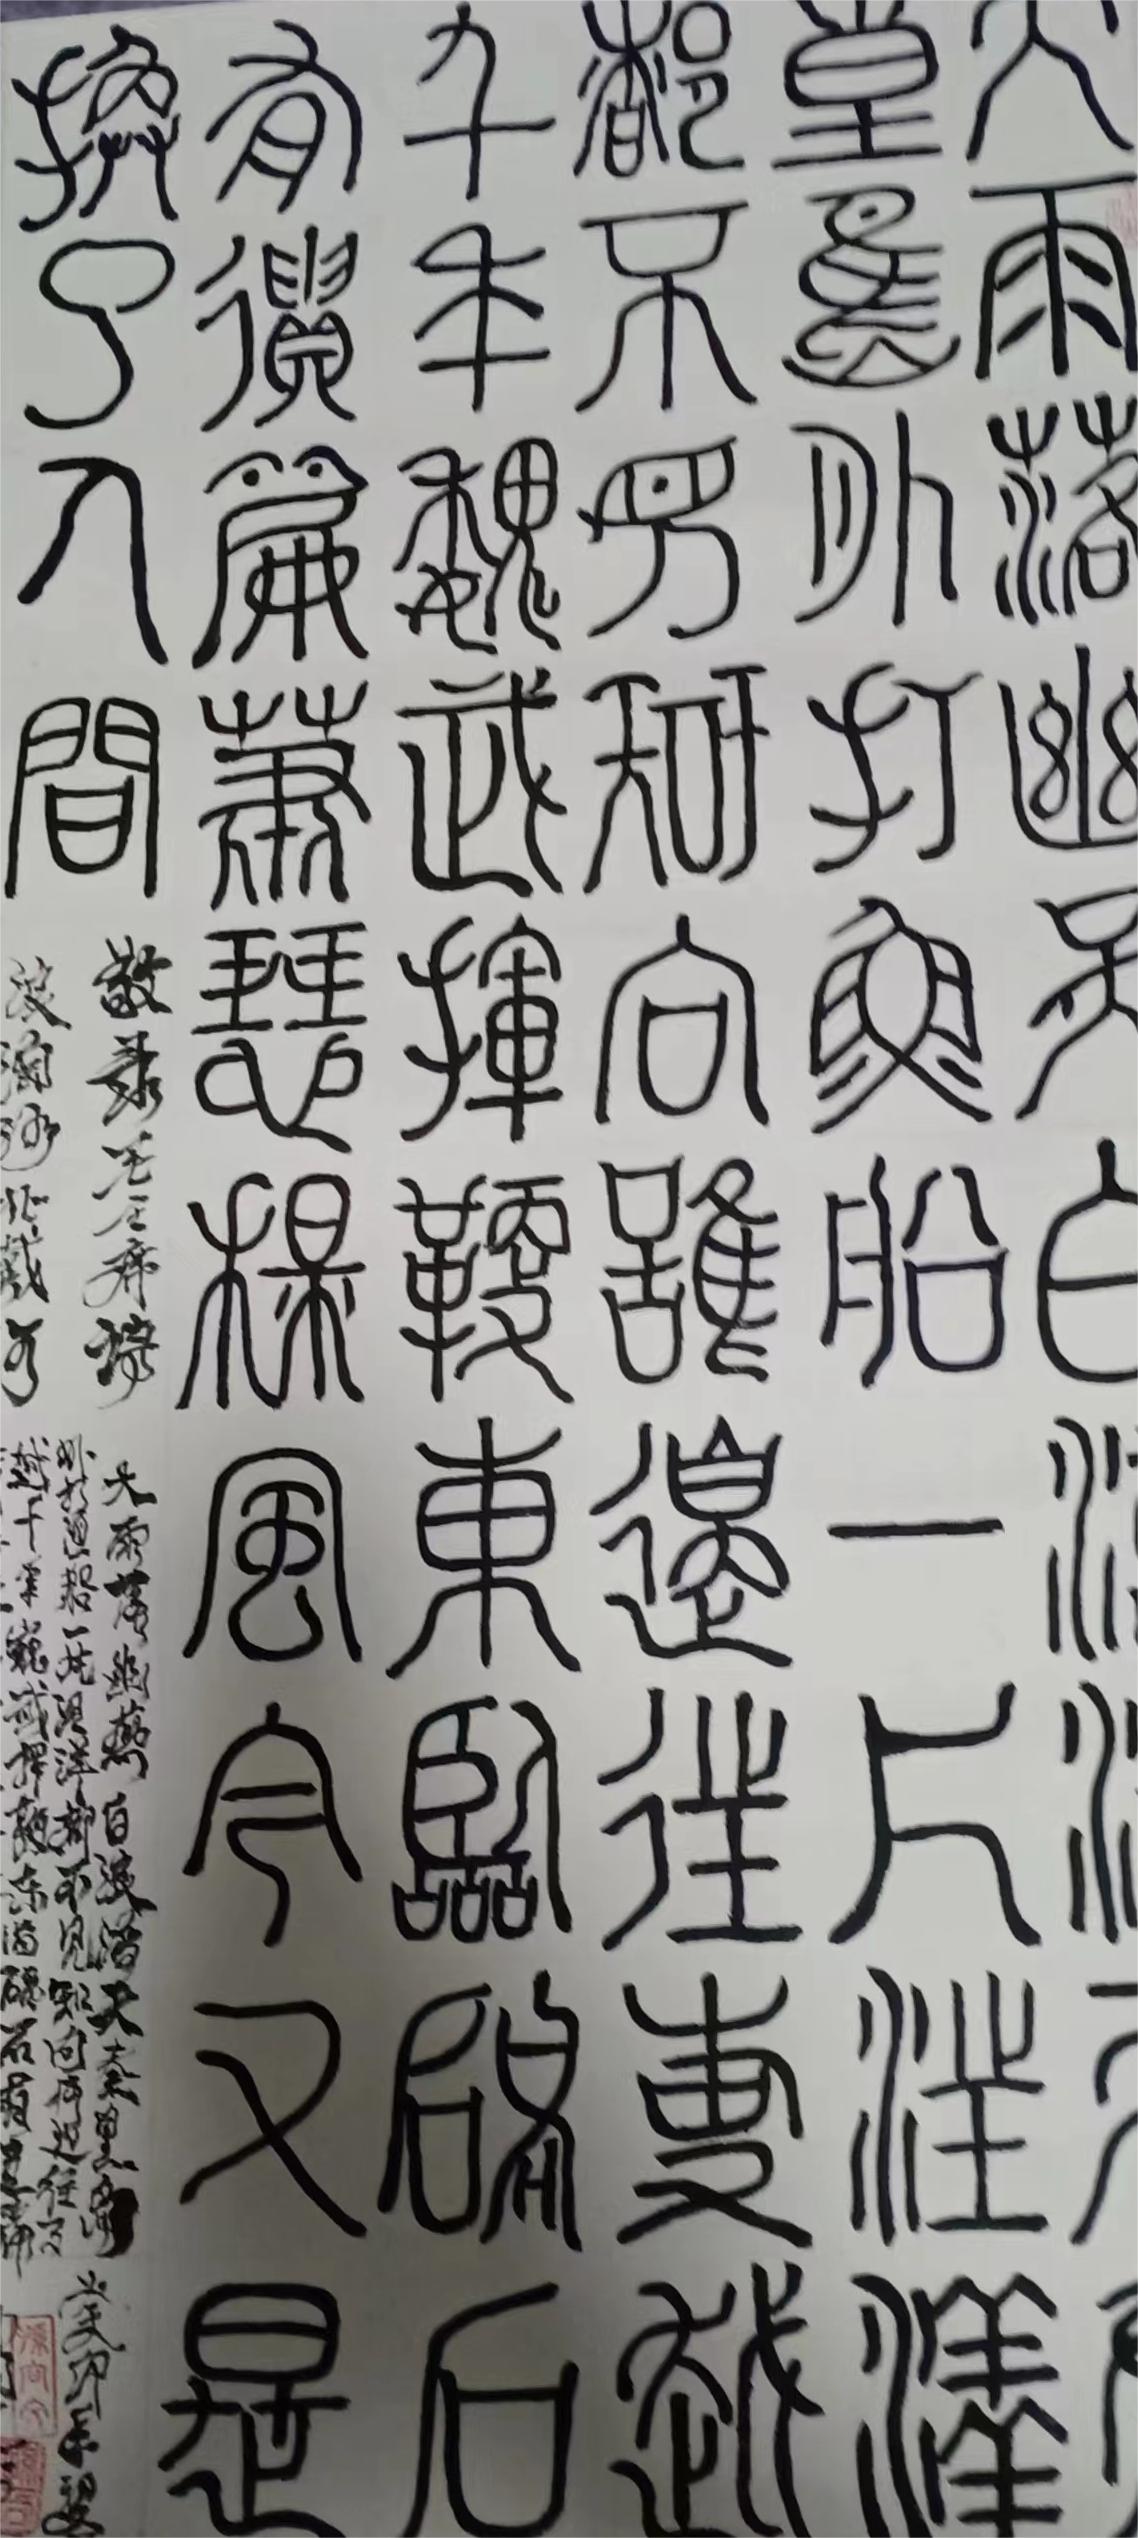 大雨落幽燕白浪滔天秦
皇島外打魚船一片汪洋
都不見知向誰邊往事越
千年魏武揮鞭東臨碣石
有遺篇蕭瑟秋風今又是
換了人間
敬录毛主席词
浪淘沙北戴河
大雨落幽燕白浪滔天秦皇島
外打魚船一片汪洋都不見知向誰邊往事
越千年魏武揮鞭東臨碣石有遺篇
癸卯年夏